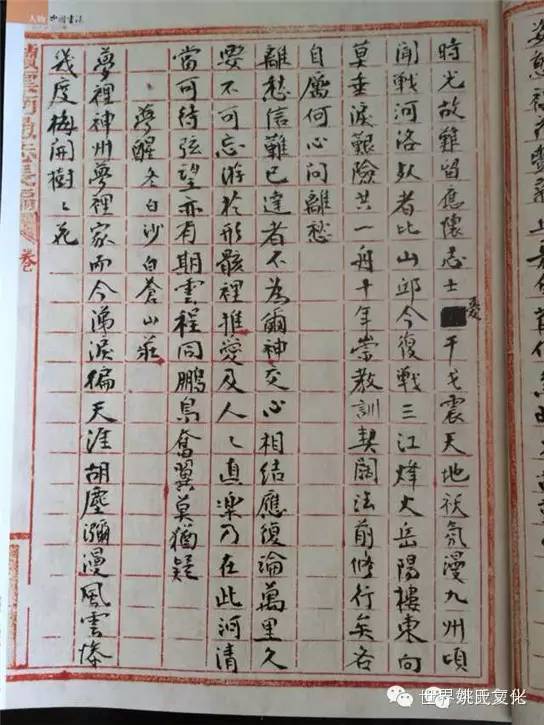 人物 中国书法
時光故難留應懷志士憂干戈震天地祅氛漫九州頃
聞戰河洛死者比山邱今復戰三江烽火岳陽樓東向
莫垂淚艱險共一舟十年崇教訓契闊法前修行矣各
自厲何心問離愁
離愁信難已達者不為爾神交心相結應復論萬里久
要不可忘游於形骸裡推愛及人々真樂乃在此河清
當可待弦望亦有期雲程同鵬鳥奮翼莫猶疑
夢醒 冬白沙白蒼山莊
夢裡神州夢裡家而今涕淚徧天涯胡塵瀰漫風雲慘
幾度梅開樹々花
續雲南通志長編 卷
世界姚氏文化